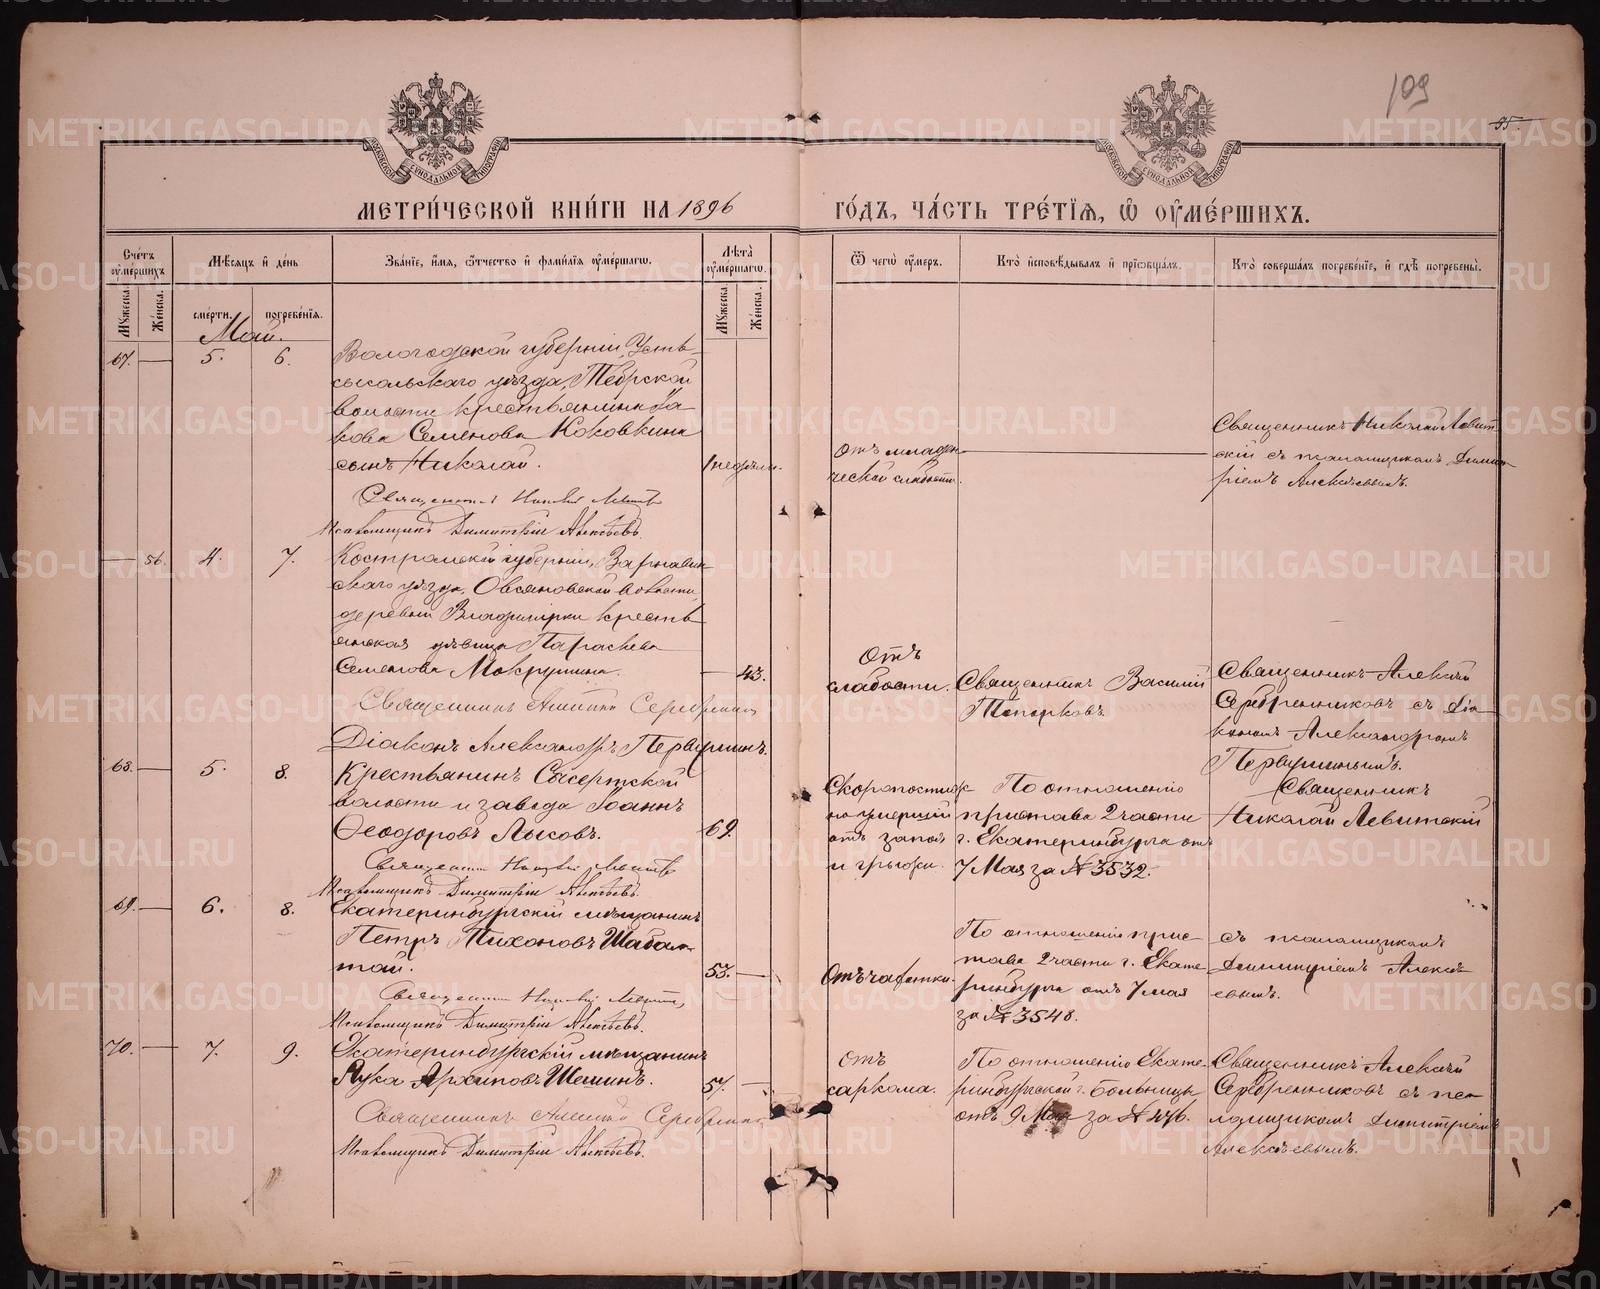 109
85.
МЕТРИ́ЧЕСКОЙ КНИ́ГИ НА 1896 ГО́ДЪ, ЧА́СТЬ ТРЕ́ТІѦ, Ѽ ОУ҆МЕ́РШИХЪ.
Сче́тъ оу҆ме́ршихъ
Мѣ́сѧцъ и҆ де́нь
Зва́нїе, и҆́мѧ, ѻ҆́тчество и҆ фами́лїѧ оу҆ме́ршагѡ.
Лѣ̀та оу҆ме́ршагѡ.
Ѿ чегѡ̀ оу҆́меръ.
Кто̀ и҆сповѣ́дывалъ и҆ прїѡбща́лъ.
Кто̀ соверша́лъ погребе́нїе, и҆ гдѣ̀ погребены̀.
Мꙋ́жеска. Же́нска.
сме́рти. погребе́нїѧ.
Мꙋ́жеска. Же́нска.
Май.
67. 5. 6.
Вологодской губерніи, Усть-
сысольскаго уѣзда,
волости крестьянина Іа-
кова Семенова Коковкина
сынъ Николай.
1 недѣли.
Отъ младен-
ческой слабости.
Священникъ Николай Левит-
скій съ псаломщикомъ Димит-
ріемъ Алексѣевымъ.
Священникъ Николай Левитскій
Псаломщикъ Димитрій Алексѣевъ.
56. 4. 7.
Костромской губерніи, Варнавин-
скаго уѣзда, Овсяновской волости,
деревни Владимірки кресть-
янская дѣвица Параскева
Семенова Мокрушина.
43.
Отъ
слабости.
Священникъ Василій
Топорковъ.
Священникъ Алексій
Серебренниковъ съ діа-
кономъ Александромъ
Первушинымъ.
Священникъ Алексій Серебренниковъ
Діаконъ Александръ Первушинъ.
68. 5. 8.
Крестьянинъ Сысертской
волости и завода Іоаннъ
Ѳеодоровъ Лысовъ.
69.
Скоропостиж-
но умершій
отъ запоя
и грыжи.
По отношенію
пристава 2 части
г. Екатеринбурга отъ
7 Мая за № 3532.
Священникъ
Николай Левитскій
Священникъ Николай Левитскій
Псаломщикъ Димитрій Алексѣевъ.
69. 6. 8.
Екатеринбургскій мѣщанинъ
Петръ Тихоновъ
53.
Отъ чахотки.
По отношенію прис-
тава 2 части г. Екате-
ринбурга отъ 7 мая
за № 3548.
съ псаломщикомъ
Димитріемъ Алексѣ-
евымъ.
Священникъ Николай Левитскій
Псаломщикъ Димитрій Алексѣевъ.
70. 7. 9.
Екатеринбургскій мѣщанинъ
Лука Архиповъ Шешинъ.
57.
Отъ
саркома.
По отношенію Екате-
ринбургской г. больницы
отъ 9 Мая за № 476.
Священникъ Алексій
Серебренниковъ съ пса-
ломщикомъ Димитріемъ
Алексѣевымъ.
Священникъ Алексій Серебренниковъ
Псаломщикъ Димитрій Алексѣевъ.
METRIKI.GASO-URAL.RU